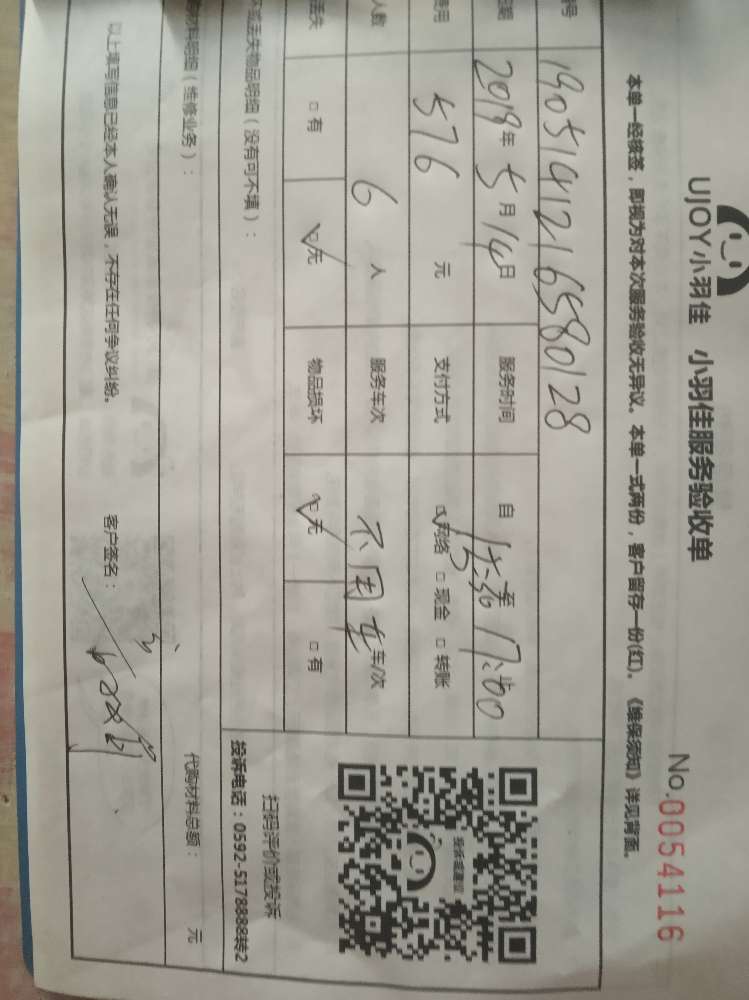 UJOY小羽佳 小羽佳服务验收单
No.0054116
本单一经核签，即视为对本次服务验收无异议。本单一式两份，客户留存一份(红)。《维保须知》详见背面。
号 19051412165580128
期 2019年5月14日 服务时间 自 至17:00
费用 576 元 支付方式 ☑网络 □现金 □转账
人数 6 人 服务车次 不用车 车/次
丢失 □有 ☑无 物品损坏 ☑无 □有
投诉或建议
扫码评价或投诉
投诉电话：0592-5178888转2
坏或丢失物品明细（没有可不填）：
材料明细（维修业务）： 代购材料总额： 元
以上填写信息已经本人确认无误，不存在任何争议纠纷。 客户签名：